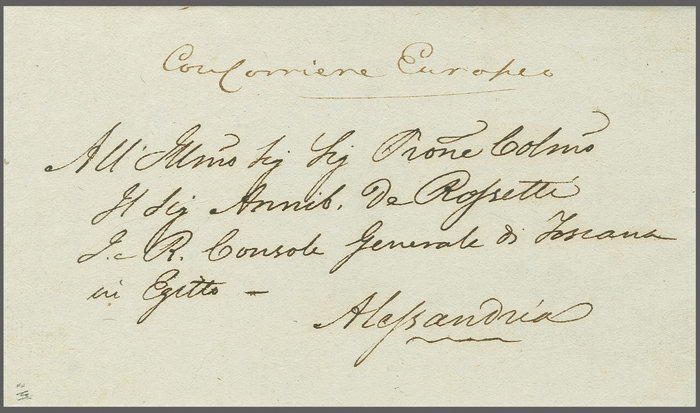 Con Corriere Europeo
All' Illmo Sig Sig Prone Colmo
Il Sig Annib. De Rossetti
I. e R. Console Generale di Toscana
in Egitto –
Alessandria